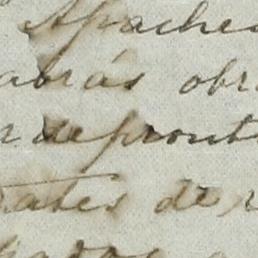 Apaches
abrás obr
r de pront
rates de r